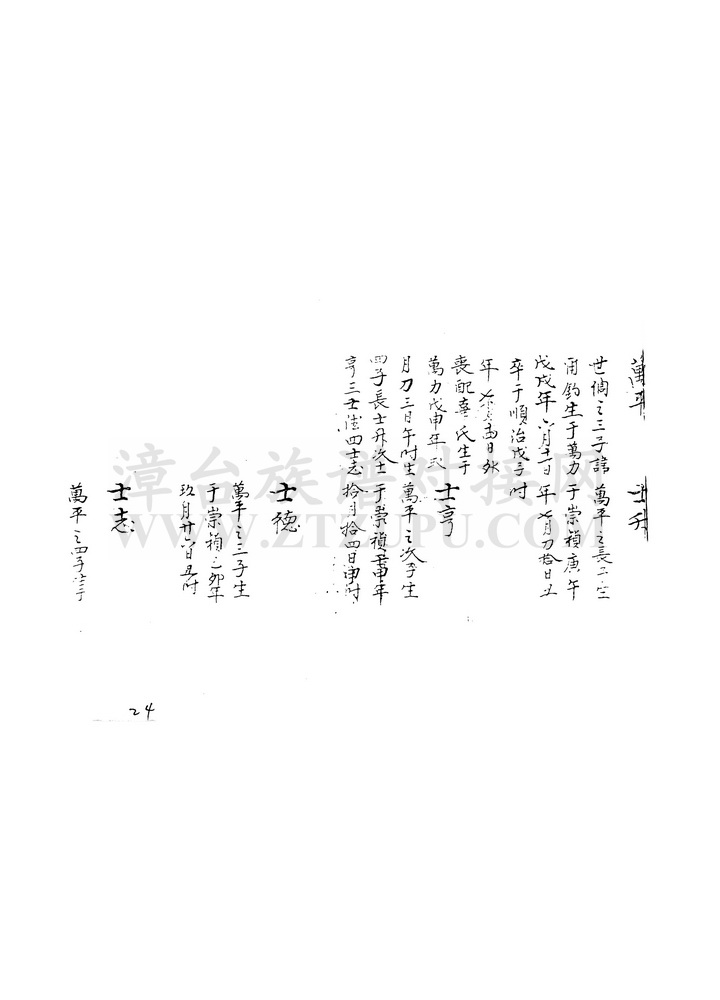 萬平
世倜之三子諱
用鈞生于萬力
戊戌年六月十一日
卒于順治戊子
年七月 日外
喪配喜氏生于
萬力戊申年弍
月刀三日午时生
四子長士升次士
亨三士德四士志
士升
萬平之長子生
于崇禎庚午
年七月刀拾日丑
时
士亨
萬平之次子生
于崇禎 申年
拾月拾四日申时
士德
萬平之三子生
于崇禎己卯年
玖月廿六日丑时
士志
萬平之四子
24
漳台族谱对接网
WWW.ZTZUPU.COM